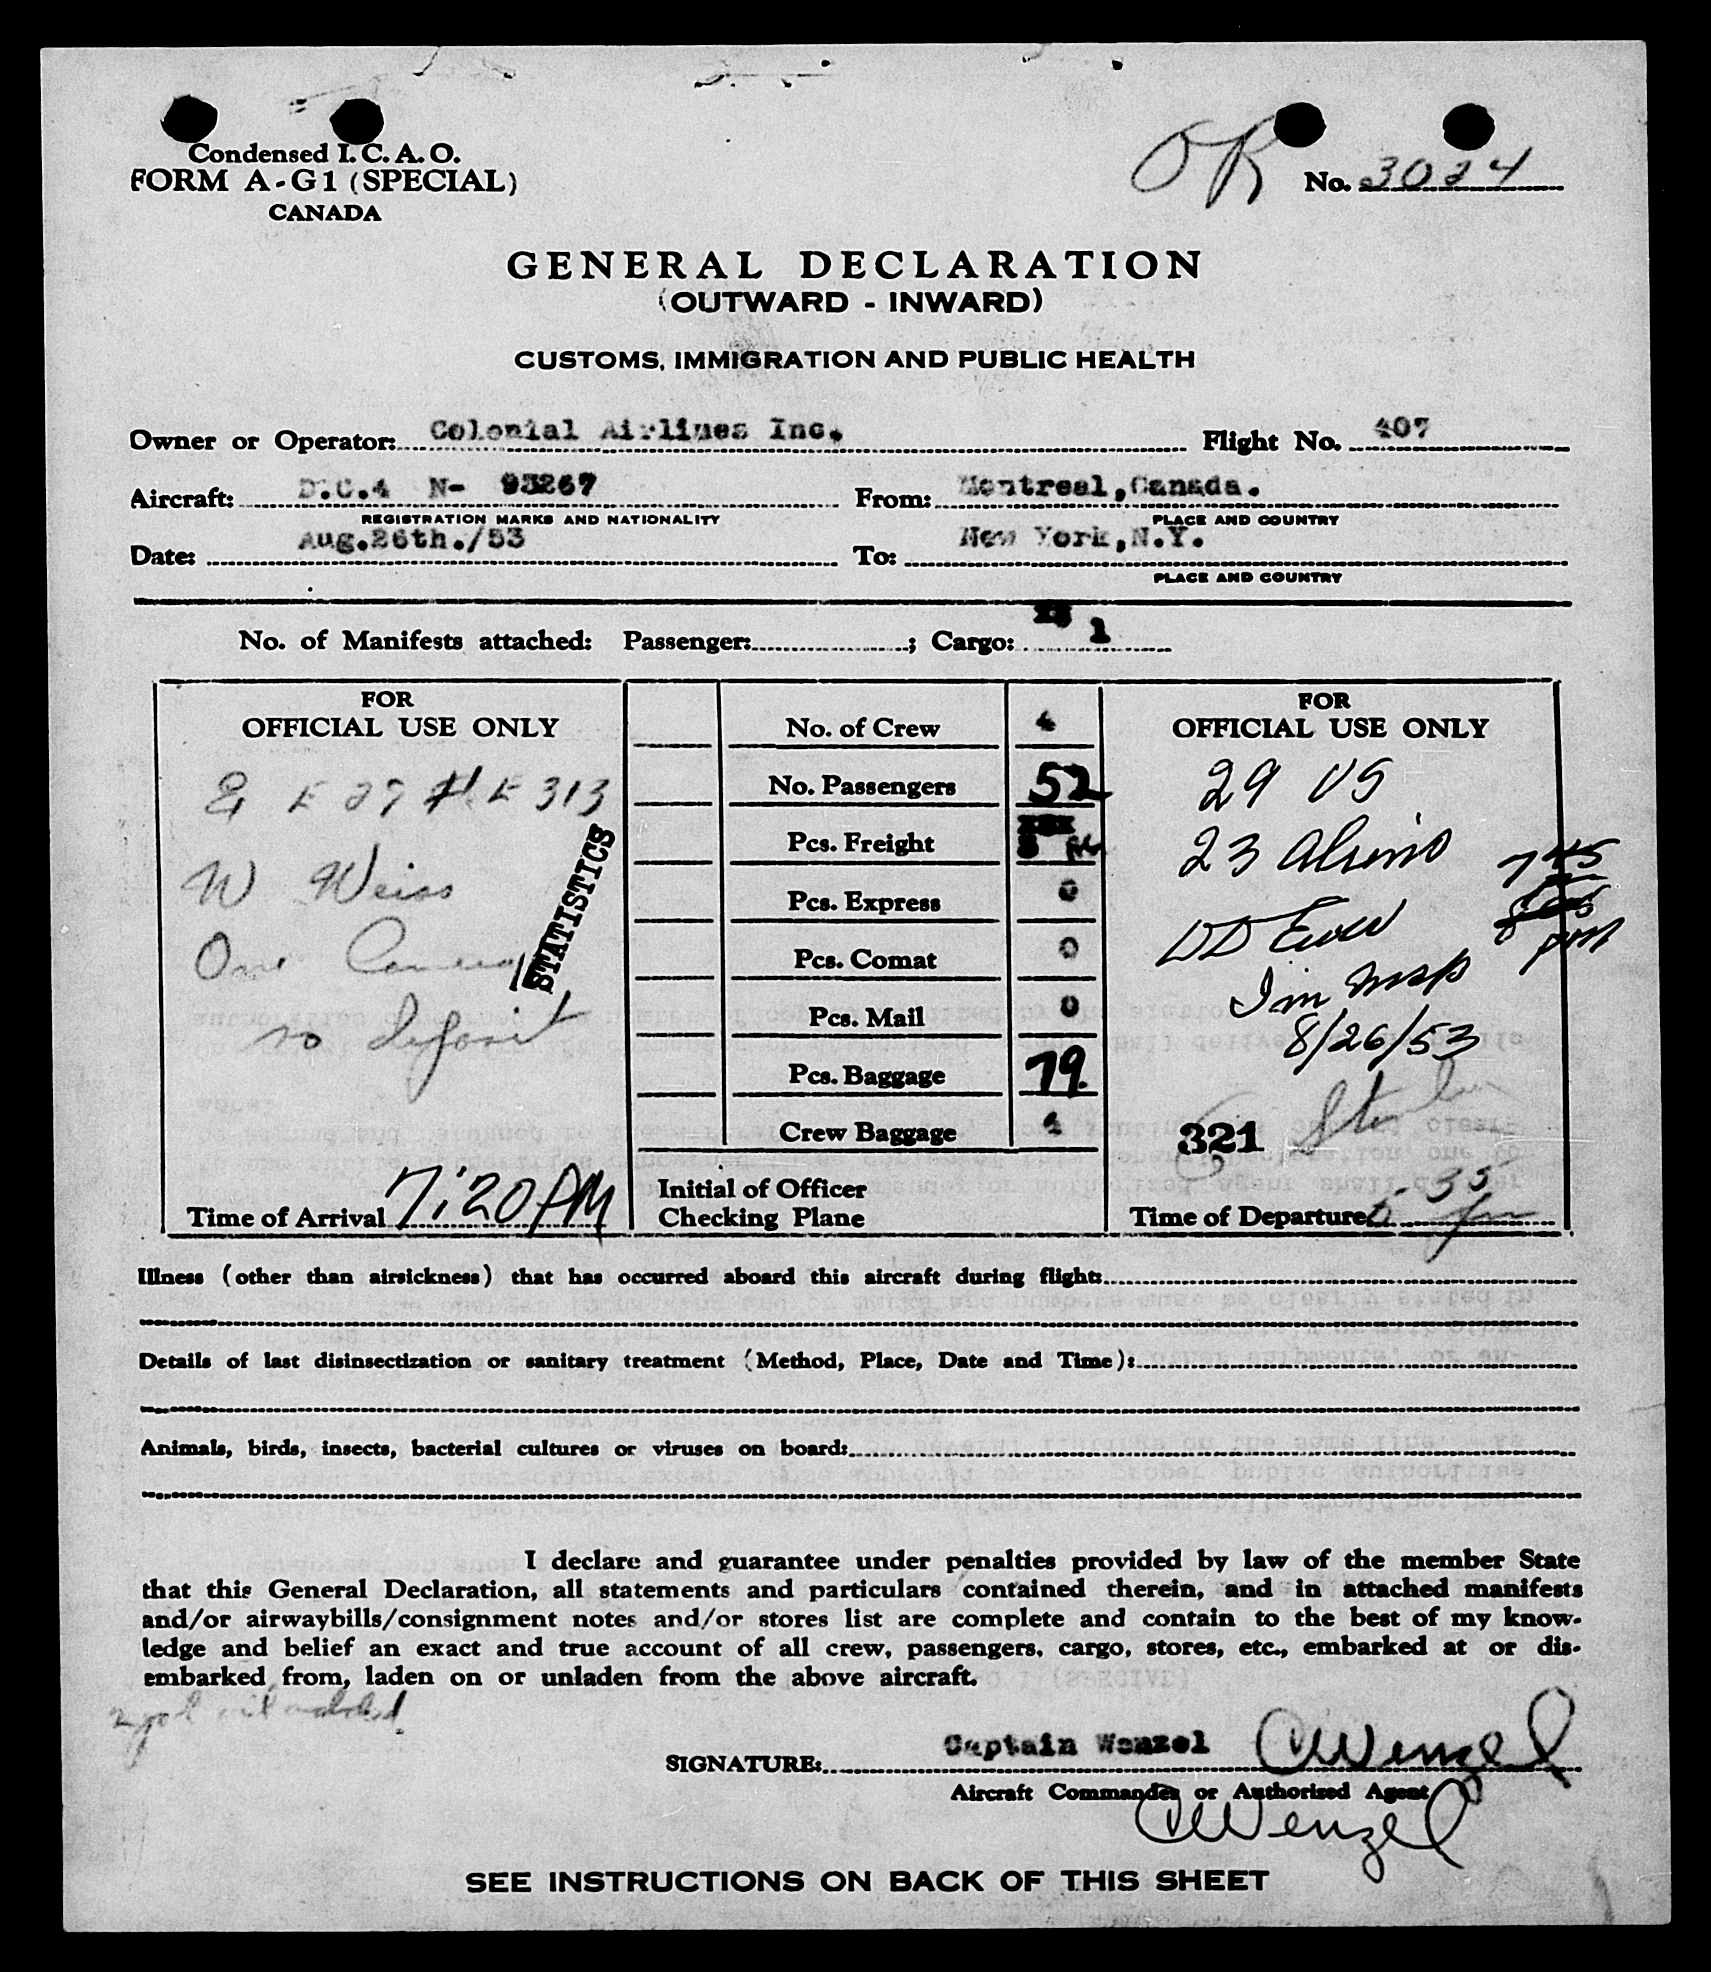 Condensed I. C. A. O.
FORM A-G1 (SPECIAL)
CANADA
OK No. 3024
GENERAL DECLARATION
(OUTWARD - INWARD)
CUSTOMS, IMMIGRATION AND PUBLIC HEALTH
Owner or Operator: Colonial Airlines Inc. Flight No. 407
Aircraft: D.C.4 N- 93267 From: Montreal, Canada.
REGISTRATION MARKS AND NATIONALITY PLACE AND COUNTRY
Date: Aug.26th./53 To: New York, N.Y.
PLACE AND COUNTRY
No. of Manifests attached: Passenger: ; Cargo: 1
FOR
OFFICIAL USE ONLY
E 313
W Weiss
One Camera
no deposit
STATISTICS
Time of Arrival 7:20 PM
No. of Crew 4
No. Passengers 52
Pcs. Freight 8
Pcs. Express 0
Pcs. Comat 0
Pcs. Mail 0
Pcs. Baggage 79
Crew Baggage 4
Initial of Officer
Checking Plane
FOR
OFFICIAL USE ONLY
29 US
23 Aliens
745
pm
Imm Insp
8/26/53
321
Time of Departure 5-35 pm
Illness (other than airsickness) that has occurred aboard this aircraft during flight:
Details of last disinsectization or sanitary treatment (Method, Place, Date and Time):
Animals, birds, insects, bacterial cultures or viruses on board:
I declare and guarantee under penalties provided by law of the member State
that this General Declaration, all statements and particulars contained therein, and in attached manifests
and/or airwaybills/consignment notes and/or stores list are complete and contain to the best of my know-
ledge and belief an exact and true account of all crew, passengers, cargo, stores, etc., embarked at or dis-
embarked from, laden on or unladen from the above aircraft.
oil added
SIGNATURE: Captain Wenzel CWenzel
Aircraft Commander or Authorized Agent
CWenzel
SEE INSTRUCTIONS ON BACK OF THIS SHEET